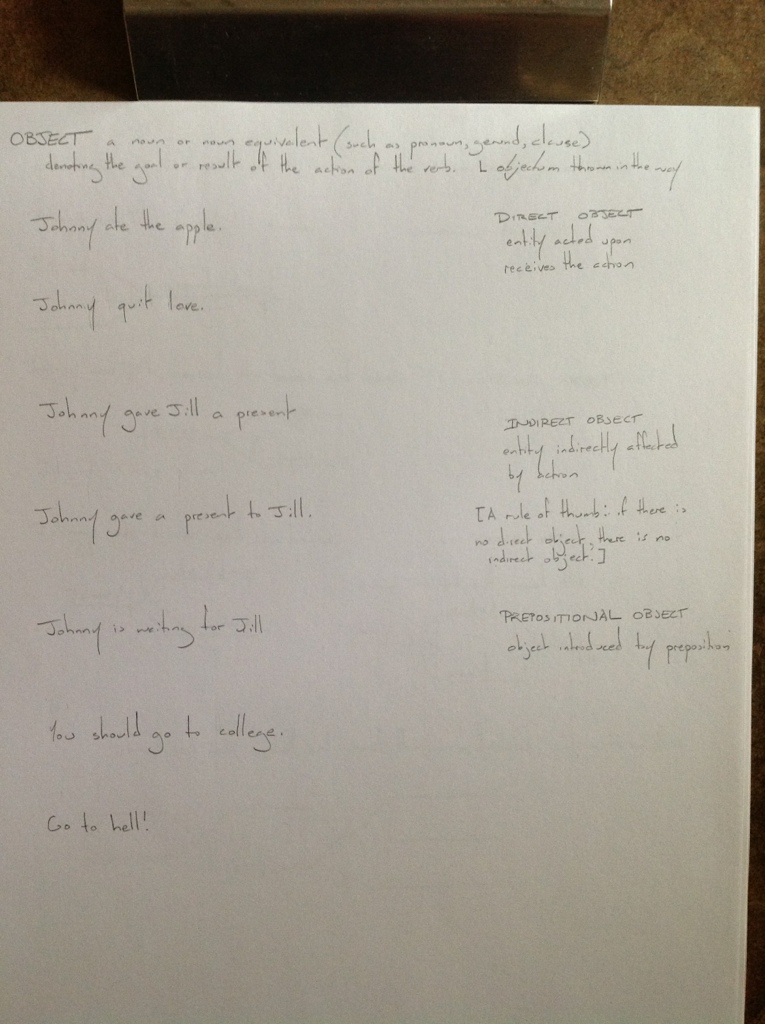 OBJECT a noun or noun equivalent (such as pronoun, gerund, clause)
denoting the goal or result of the action of the verb. L objectum thrown in the way
Johnny ate the apple.
DIRECT OBJECT
entity acted upon
receives the action
Johnny quit love.
Johnny gave Jill a present
INDIRECT OBJECT
entity indirectly affected
by action
Johnny gave a present to Jill.
[A rule of thumb: if there is
no direct object, there is no
indirect object.]
Johnny is waiting for Jill
PREPOSITIONAL OBJECT
object introduced by preposition
You should go to college.
Go to hell!